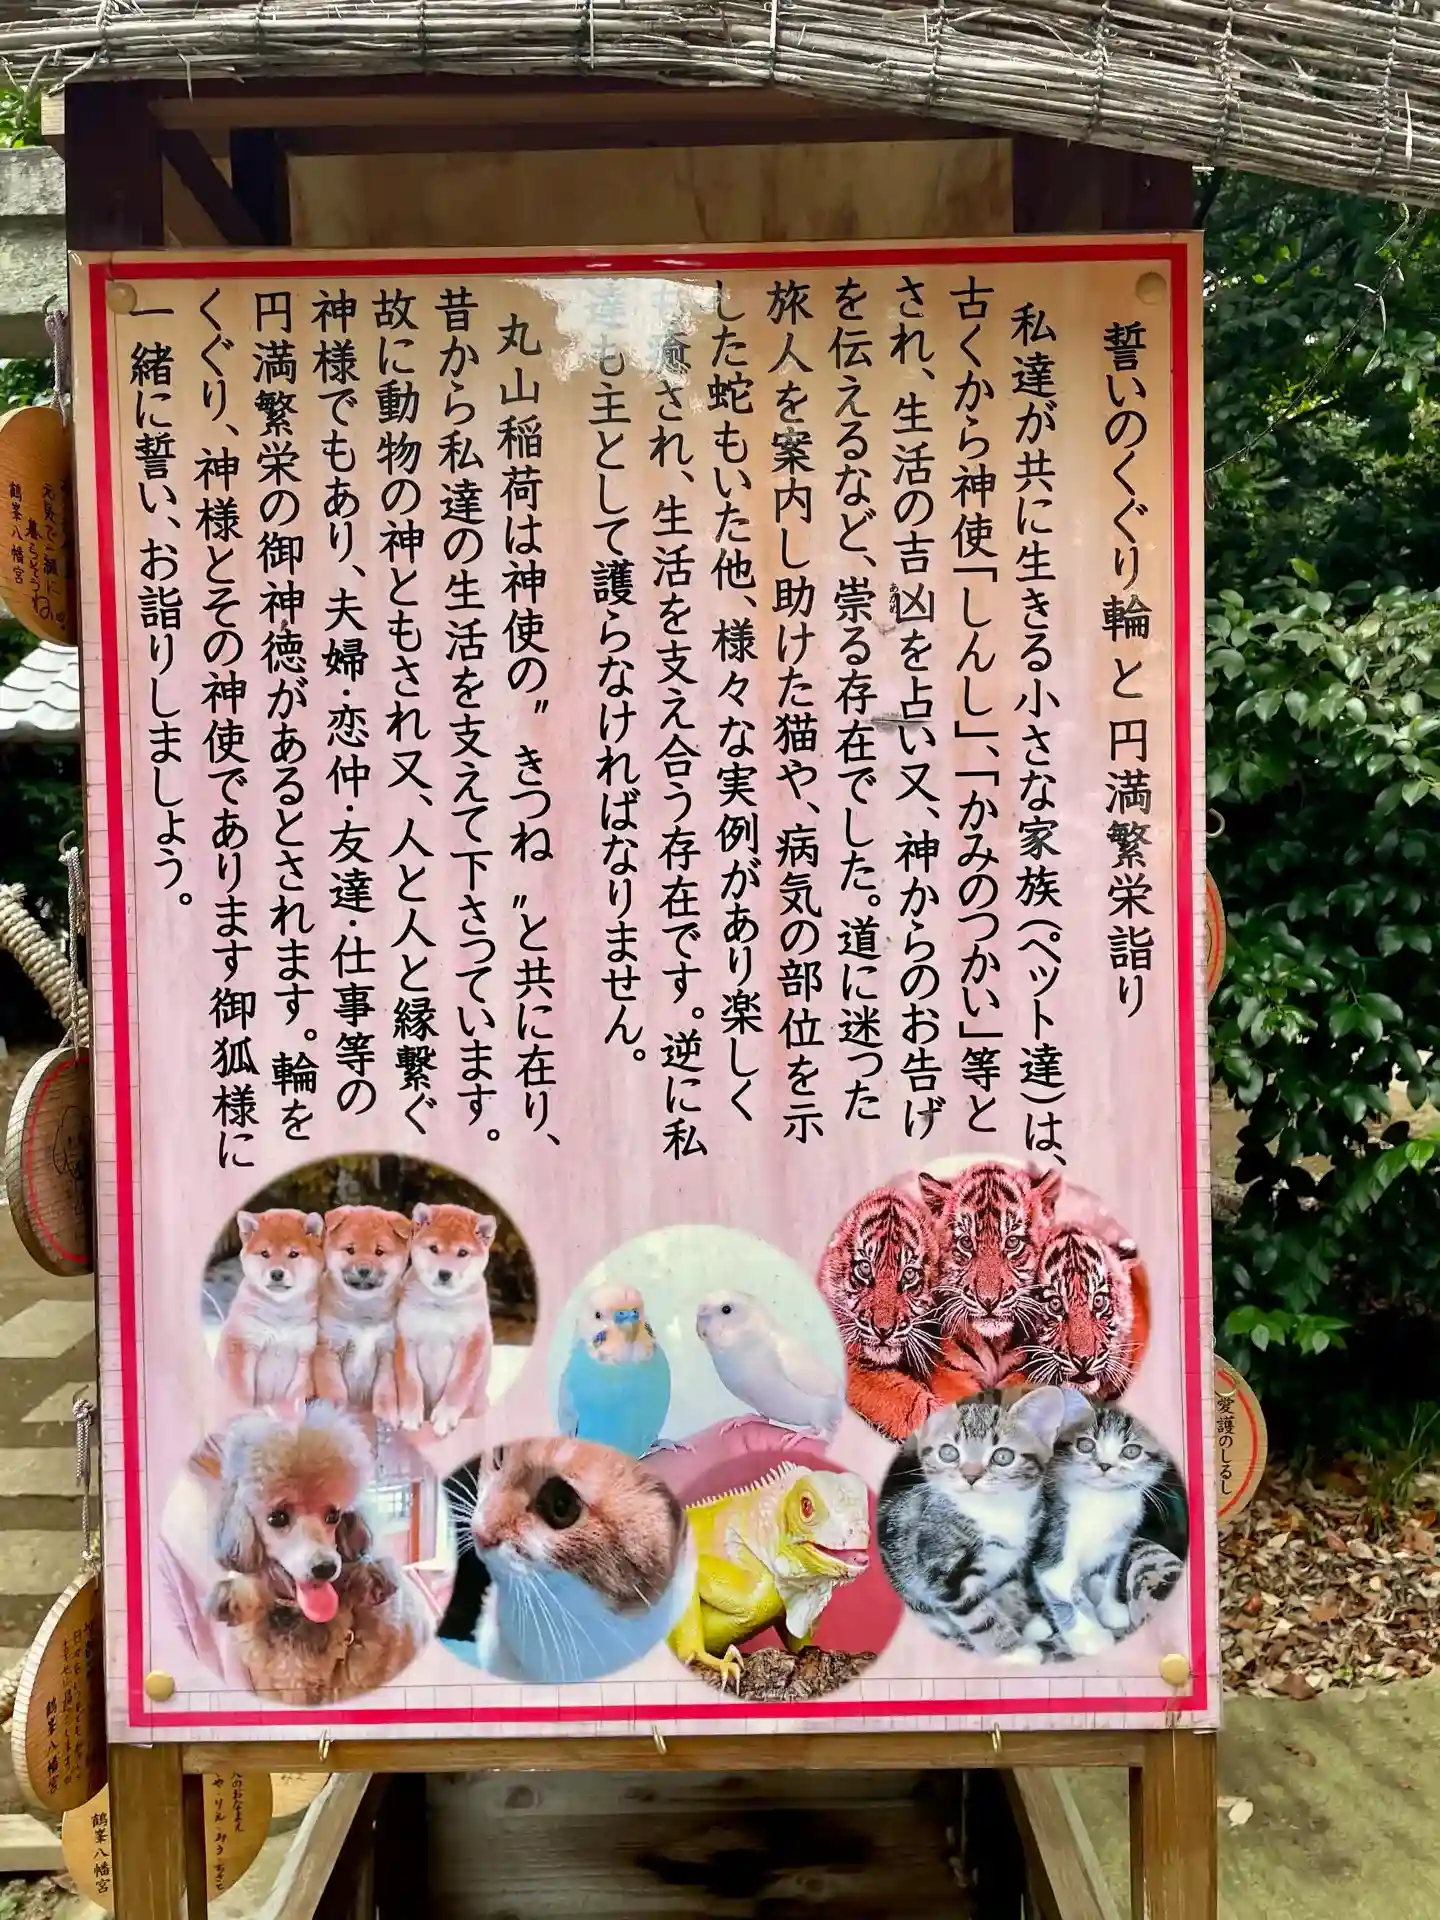 誓いのくぐり輪と円満繁栄詣り
私達が共に生きる小さな家族(ペット達)は、
古くから神使「しんし」、「かみのつかい」等と
され、生活の吉凶を占い又、神からのお告げ
を伝えるなど、崇る存在でした。道に迷った
あがめ
旅人を案内し助けた猫や、病気の部位を示
した蛇もいた他、様々な実例があり楽しく
も癒され、生活を支え合う存在です。逆に私
達も主として護らなければなりません。
丸山稲荷は神使の〝きつね〟と共に在り、
昔から私達の生活を支えて下さっています。
故に動物の神ともされ又、人と人と縁繋ぐ
神様でもあり、夫婦・恋仲・友達・仕事等の
円満繁栄の御神徳があるとされます。輪を
くぐり、神様とその神使であります御狐様に
一緒に誓い、お詣りしましょう。
鶴峯八幡宮
愛護のしるし
鶴峯八幡宮
鶴峯八幡宮